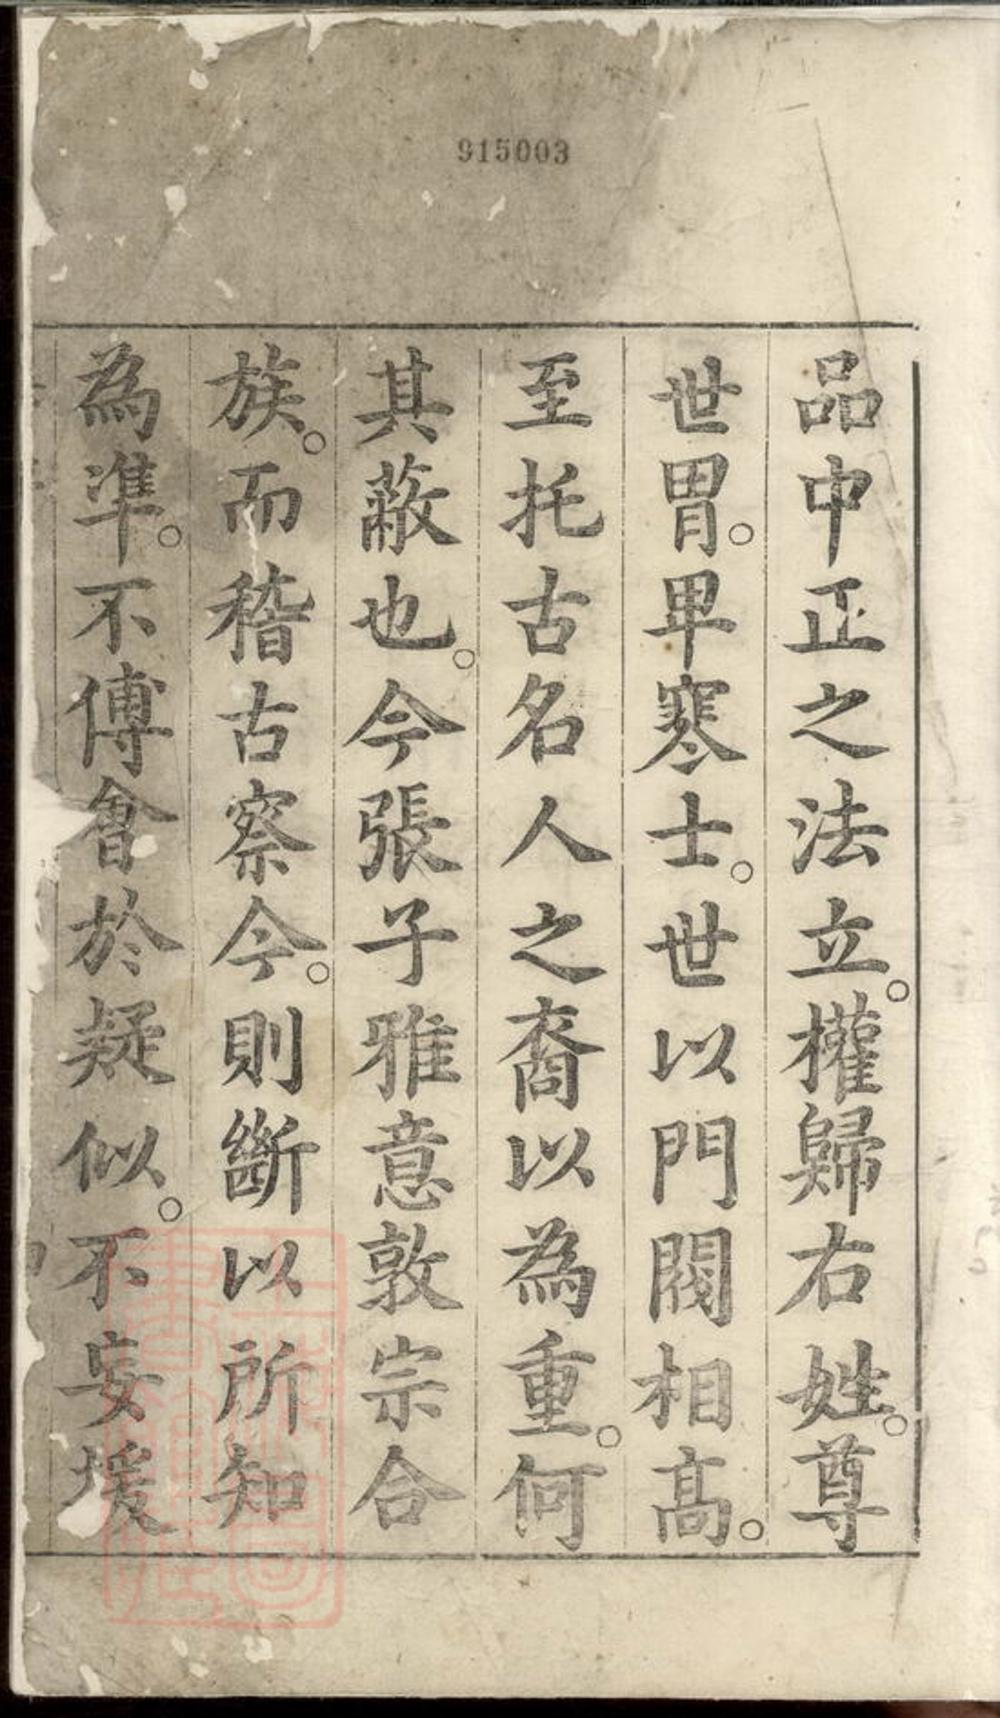 915003
品中正之法立。權歸右姓。尊
世胃。卑寒士。世以門閥相高。
至托古名人之裔以為重。何
其蔽也。今張子雅意敦宗合
族。而稽古察今。則斷以所知
為準。不傅會於疑似。不妄援